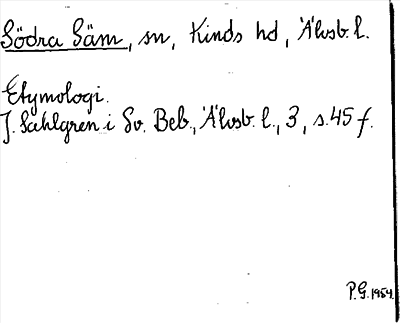 Södra Säm, sn, Kinds hd, Älvsb. l.
Etymologi.
J. Sahlgren i Sv. Beb., Älvsb. l., 3, s. 45 f.
P.G. 1954.